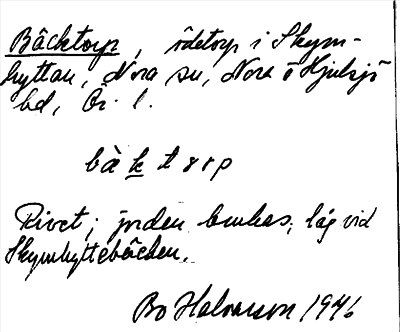 Bäcktorp, ödetorp i Skym-
hyttan, Nora sn, Nora o Hjulsjö
bd, Ör. l.
bà k t r p
Rivet; jorden brukas; låg vid
Skymhyttebäcken.
Bo Halvarson 1946